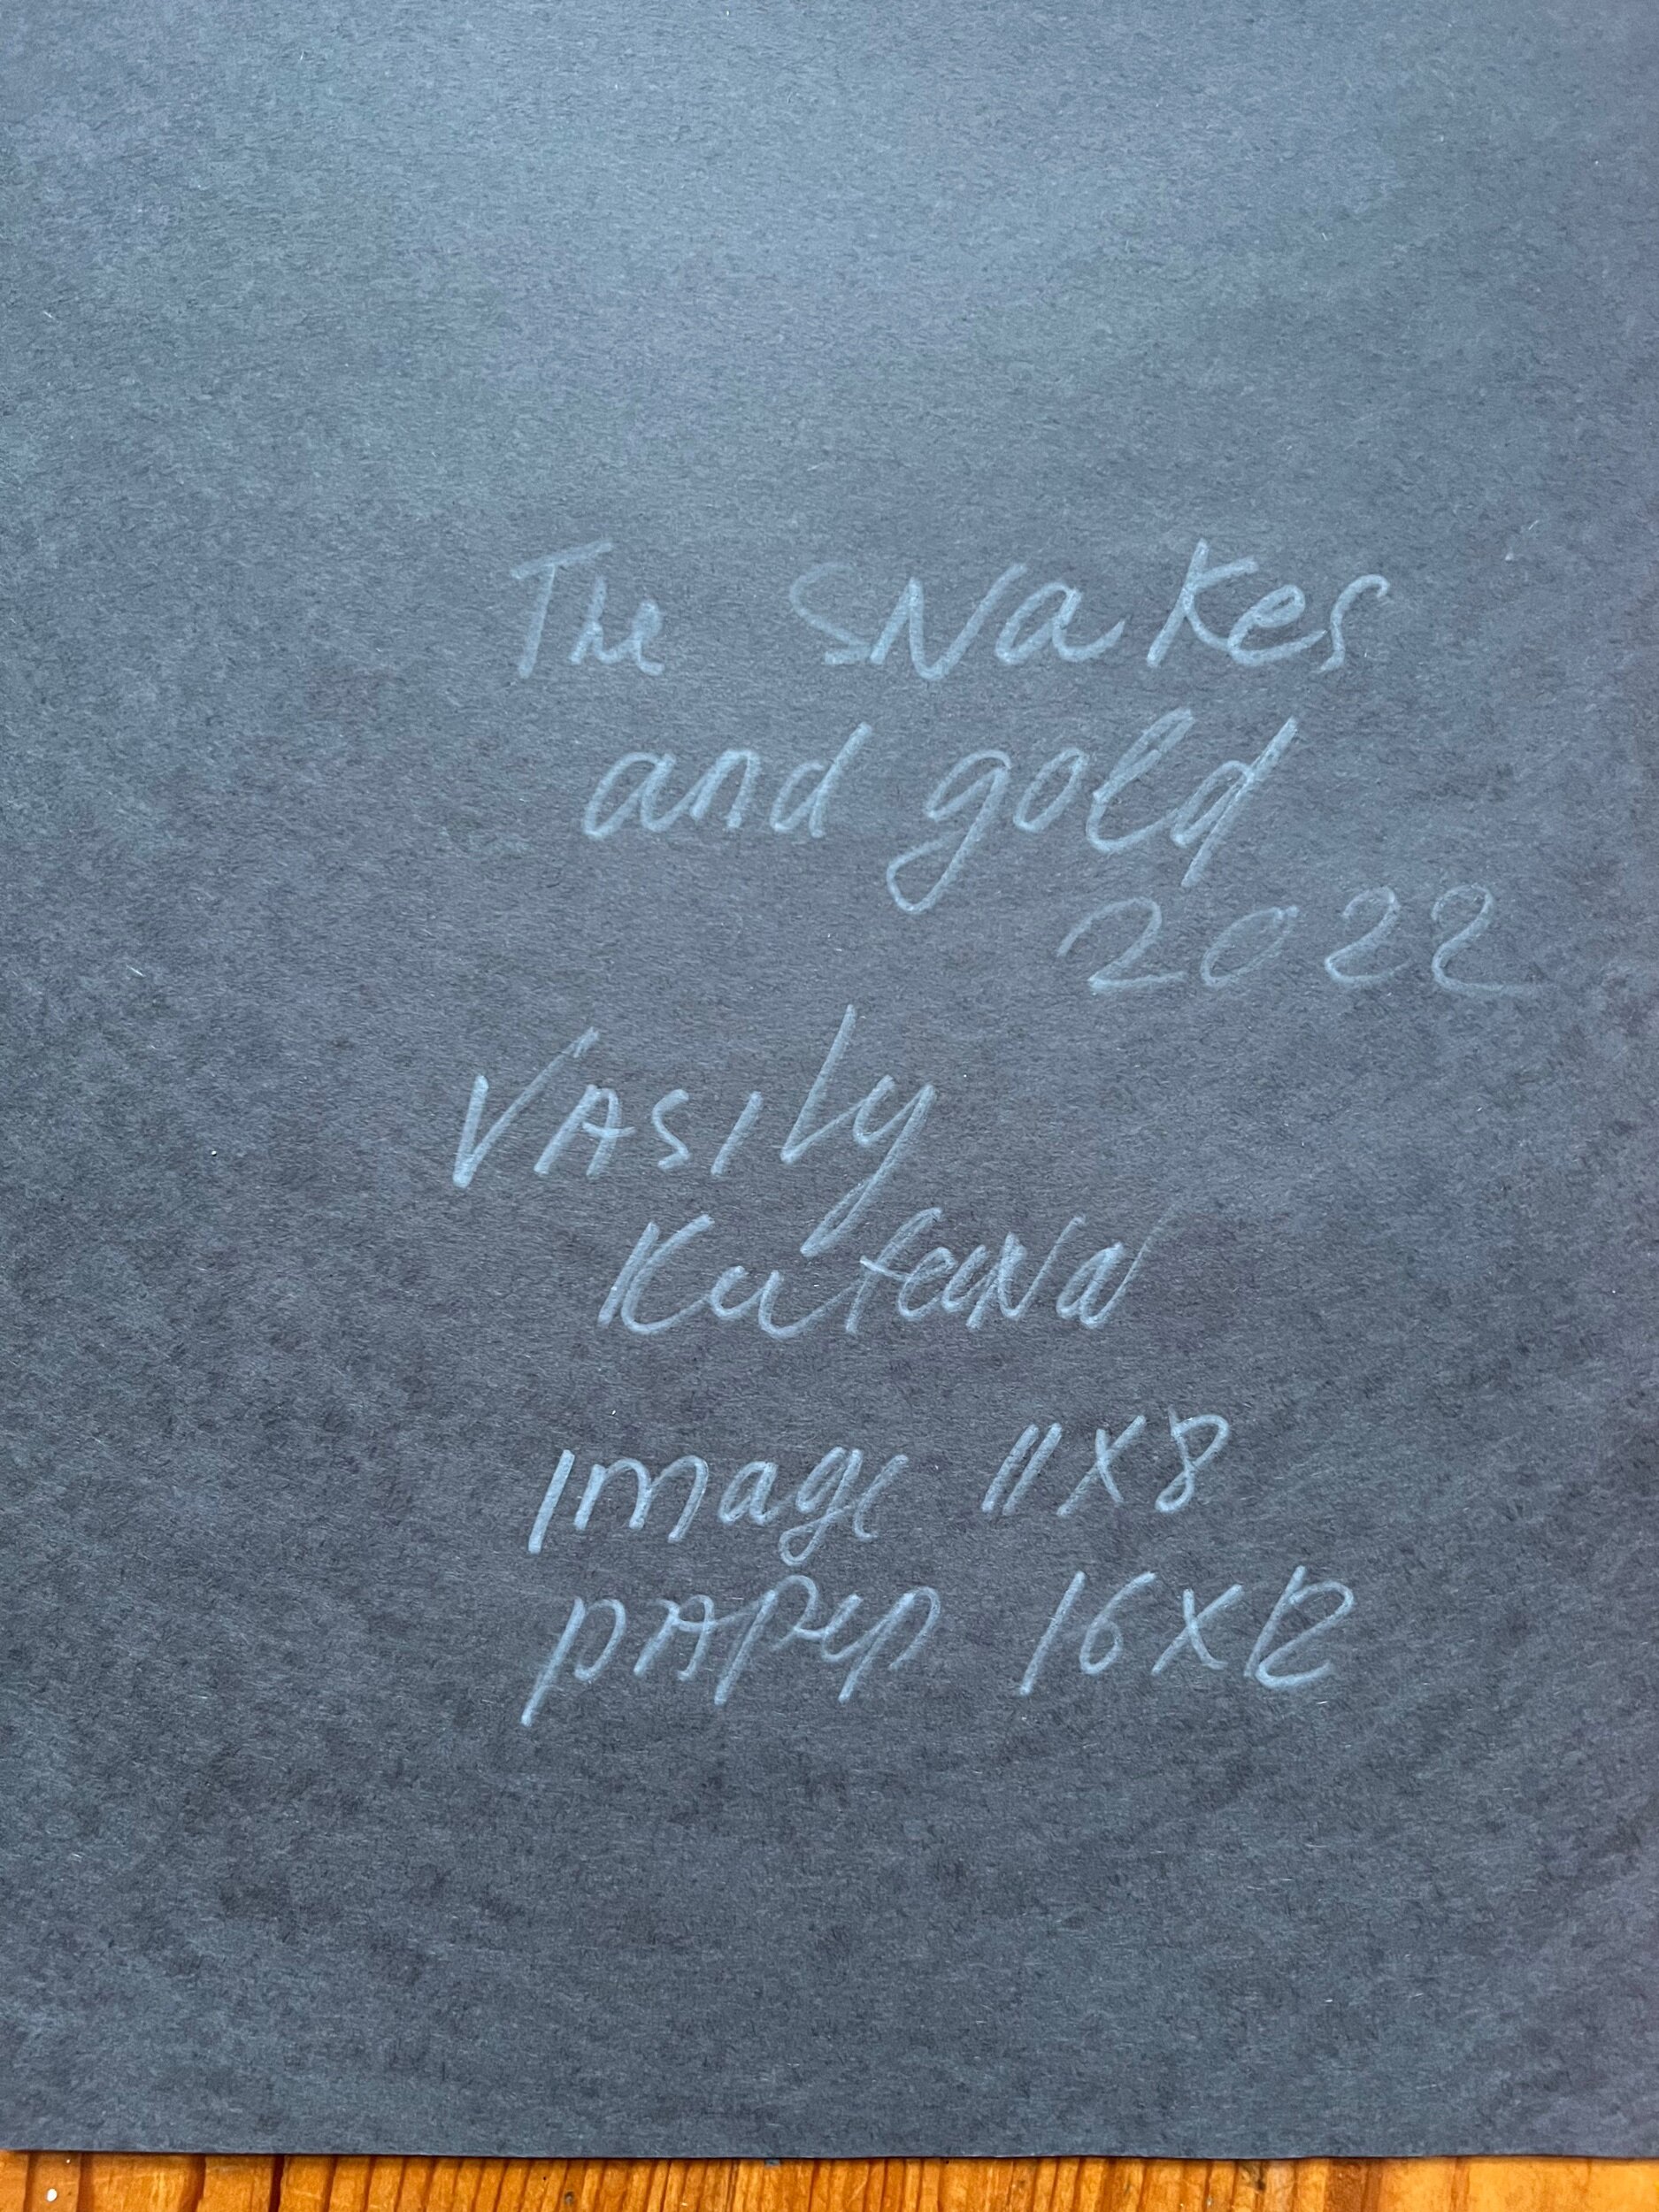 The SNakes
and gold
2022
VASIly
KuteinNa
Image 11X8
pAPep 16X12